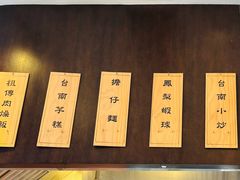 祖傳肉燥飯
台南芋粿
擔仔麵
鳳梨蝦球
台南小炒